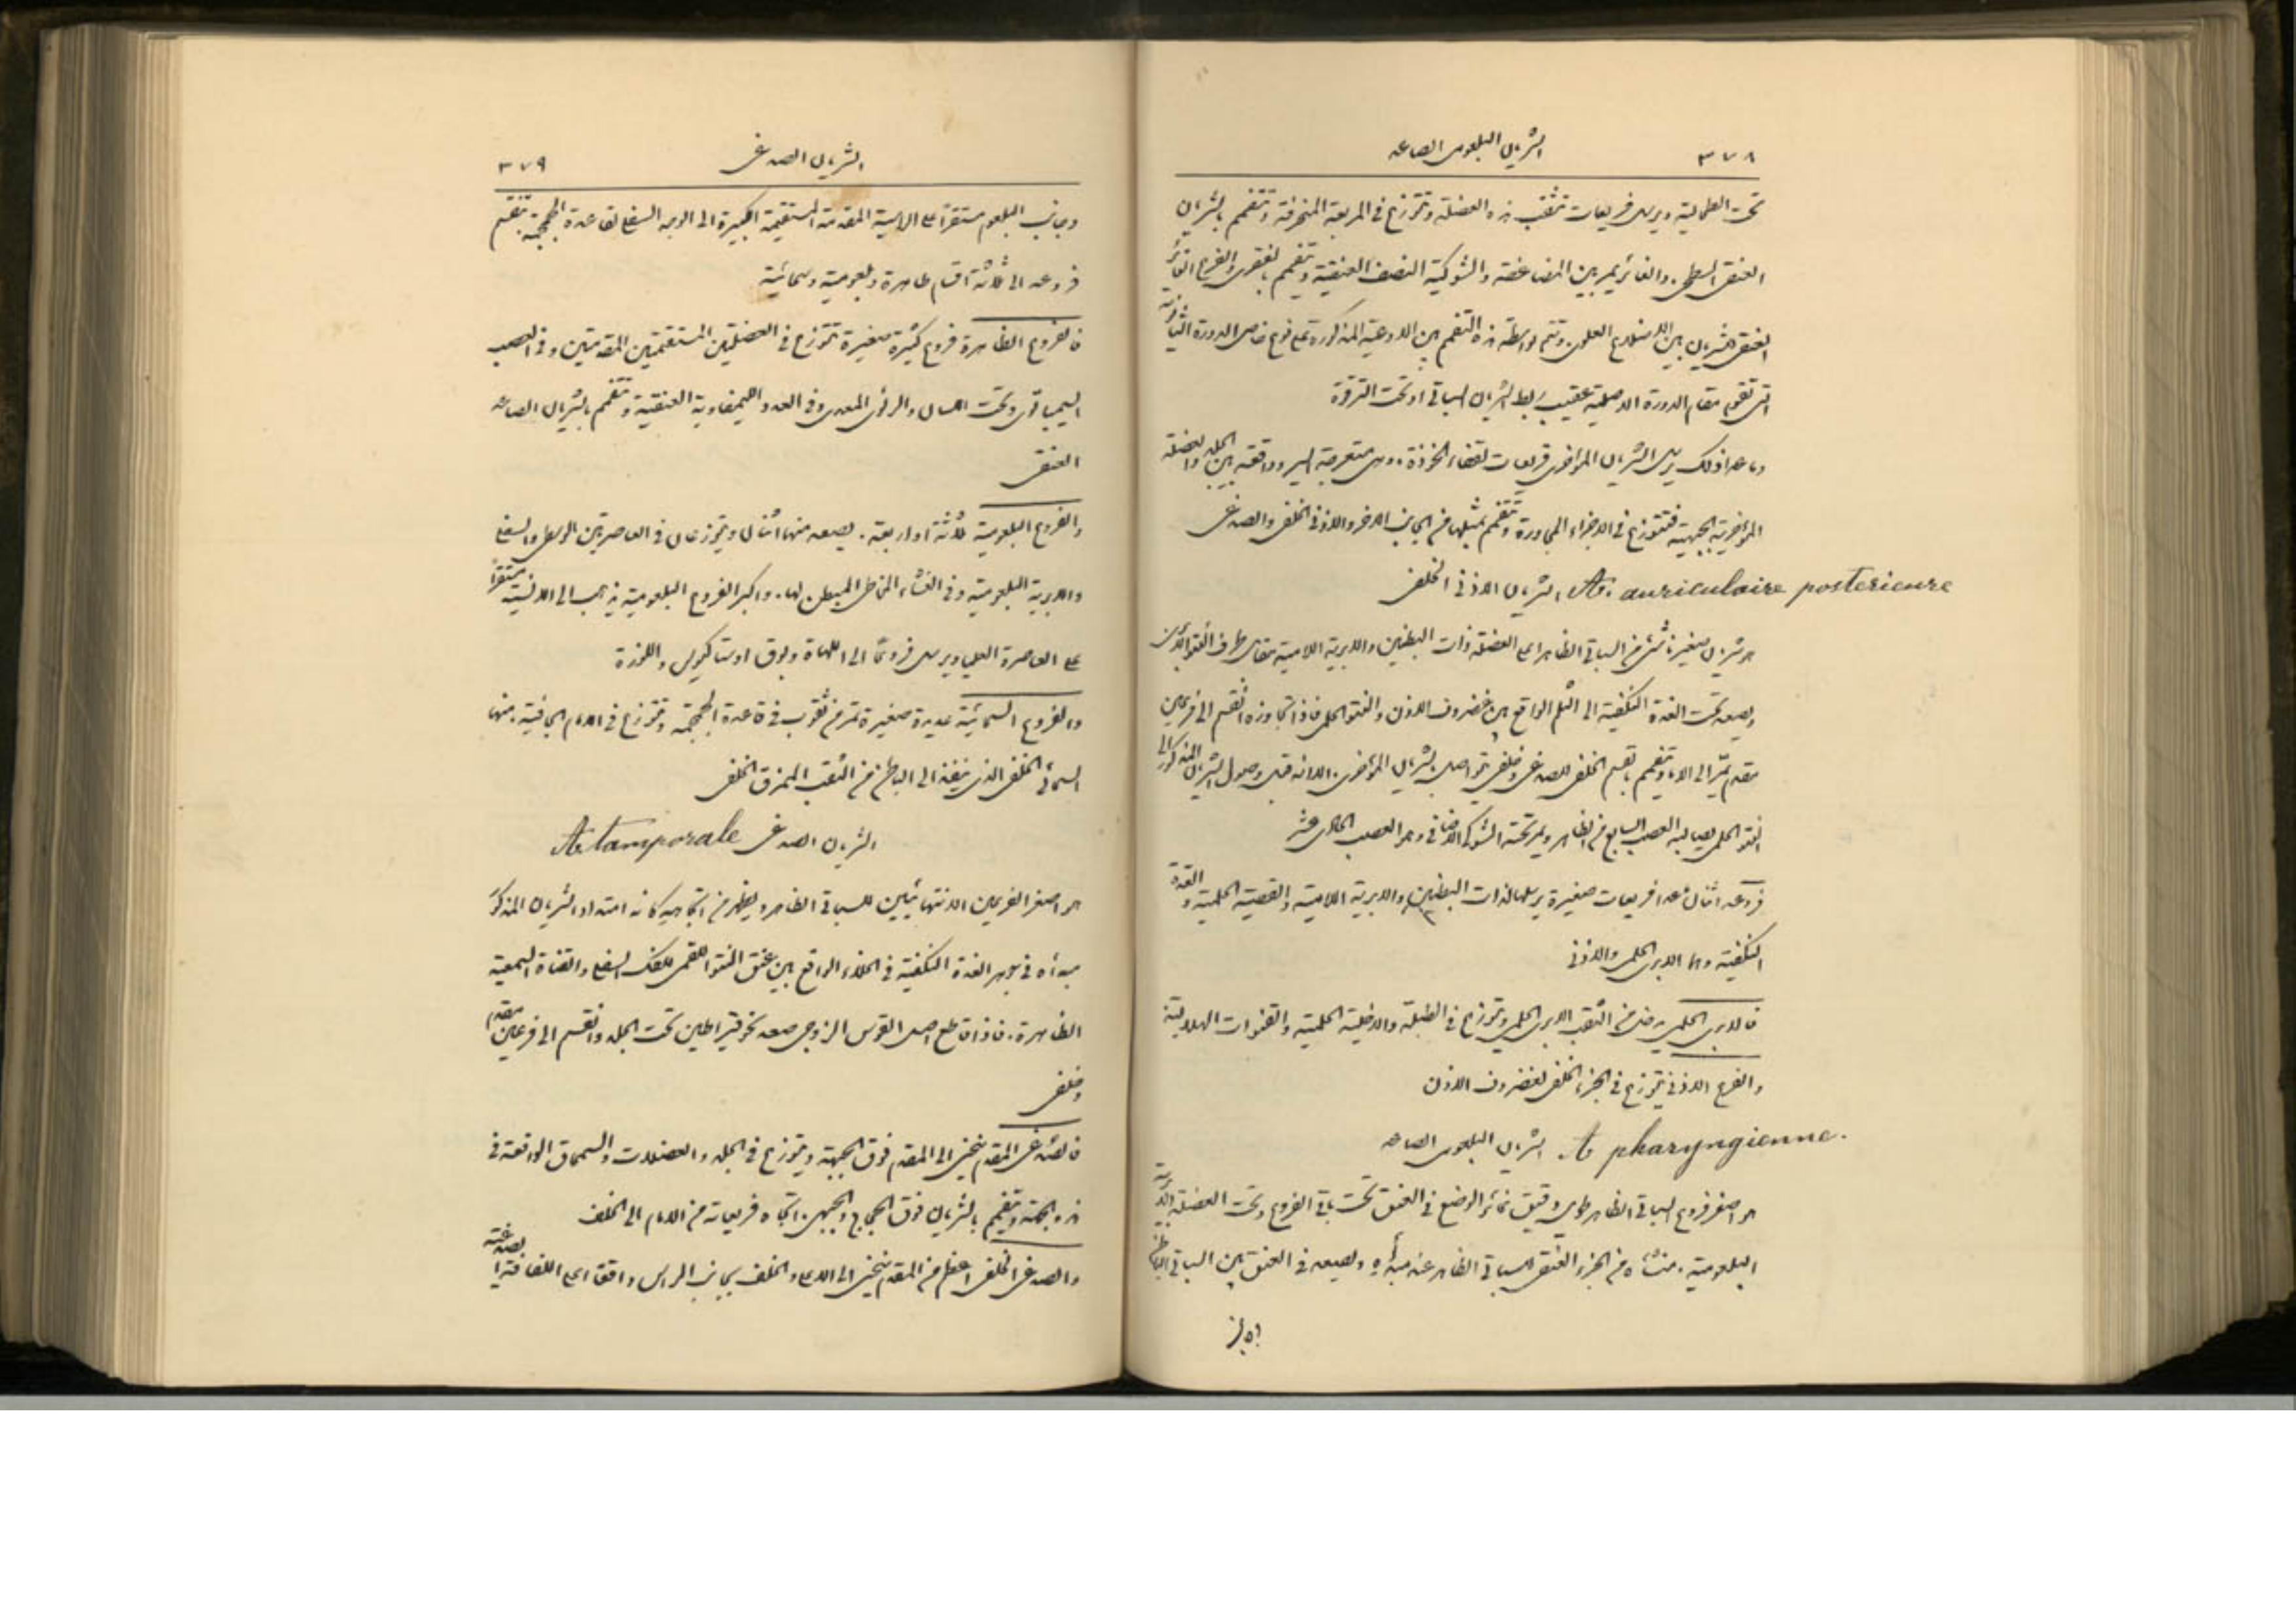 ٣٧٨ الشريان البلعومي الصاعد
تحت الطحالية ويرسل فريعات تثقب هذه العضلة وتتوزع في المربعة المنحرفة وتتفمم بالشريان
العنقي السطحي. والغائر يمر بين المضاعفة والشوكية النصف العنقية ويتفمم بالفقري والفرع الغائر
العنقي الشرياني بين الاضلاع العلوي. وتتم بواسطة هذه التفمم بين الاوعية المذكورة على نوع خاص الدورة الثانوية
التي تقوم مقام الدورة الاصلية عقيب ربط الشريان السباتي او تحت الترقوة
وما عدا ذلك يرسل الشريان المؤخري فريعات لقفاء الخوذة. وهي متعرجة السير وواقعة بين الجلد والعضلة
المؤخرية الجبهية فتتوزع في الاجزاء المجاورة وتتفمم بمثيلها من الجانب الاخر والاذني الخلفي والصدغي
الشريان الاذني الخلفي A. auriculaire posterieure
هو شريان صغير ناشئ من السباتي الظاهر اعلى العضلة ذات البطنين والابرية اللامية مقابل طرف النتو الابري
ويصعد تحت الغدة النكفية الى الثلم الواقع بين غضروف الاذن والنتو الحلمي فاذا تجاوزه انقسم الى فرعين
مقدم يمر الى الامام ويتفمم بالقسم الخلفي للصدغي وخلفي يتواصل بشريان المؤخري. الا انه قبل وصول الشريان المذكور الى
النتو الحلمي يصالبه العصب السابع من الظاهر ويمر تحته الشوكي الاضافي وهو العصب الحادي عشر
فروعه اثنان عدا فريعات صغيرة يرسلها لذات البطنين والابرية اللامية والقصية الحلمية والغدة
النكفية وهما الابري الحلمي والاذني
فالابري الحلمي يدخل من الثقب الابري الحلمي ويتوزع في الطبلة والاخلية الحلمية والقنوات الهلالية
والفرع الاذني يتوزع في الجزء الخلفي لغضروف الاذن
الشريان البلعومي الصاعد A pharyngienne.
هو اصغر فروع السباتي الظاهر طويل دقيق غائر الوضع في العنق تحت باقي الفروع وتحت العضلة الابرية
البلعومية. منشاه من الجزء العنقي للسباتي الظاهر عند مبدأه ويصعد في العنق بين السباتي الباطن
الشريان الصدغي ٣٧٩
وجانب البلعوم مستقرا على الراسية المقدمة المستقيمة الكبيرة الى الوجه السفلي لقاعدة الجمجمة. تنقسم
فروعه الى ثلاثة اقسام ظاهرة وبلعومية وسحائية
فالفروع الظاهرة فروع كثيرة صغيرة تتوزع في العضلتين المستقيمتين المقدمتين وفي العصب
السيمباتوي وتحت اللسان والرئوي المعدي وفي الغدد الليمفاوية العنقية وتتفمم بالشريان الصاعد
العنقي
والفروع البلعومية ثلاثة او اربعة. يصعد منها اثنان ويتوزعان في العاصرتين الوسطى والسفلى
والابرية البلعومية وفي الغشاء المخاطي المبطن لها. واكبر الفروع البلعومية يذهب الى الانسية مستقرا
على العاصرة العليا ويرسل فروعا الى اللهاة وبوق اوستاكيوس واللوزة
والفروع السحائية عديدة صغيرة تمر من ثقوب في قاعدة الجمجمة وتتوزع في الام الجافية. منها
السحائي الخلفي الذي ينفذ الى الباطن من الثقب الممزق الخلفي
الشريان الصدغي A tamporale
هو اصغر الفرعين الانتهائيين للسباتي الظاهر ويظهر من اتجاهه كانه امتداد الشريان المذكور
مبداه في جوهر الغدة النكفية في الخلاء الواقع بين عنق النتو اللقمي للفك السفلي والقناة السمعية
الظاهرة. فاذا قطع اصل القوس الزوجي صعد نحو قيراطين تحت الجلد وانقسم الى فرعين مقدم
وخلفي
فالصدغي المقدم ينحني الى المقدم فوق الجبهة ويتوزع في الجلد والعضلات والسمحاق الواقعة في
هذه الجهة ويتفمم بالشريان فوق الحجاج والجبهي. اتجاه فريعاته من الامام الى الخلف
والصدغي الخلفي اعظم من المقدم ينحني الى الاعلى والخلف بجانب الراس واقعا على اللفافة الصدغية